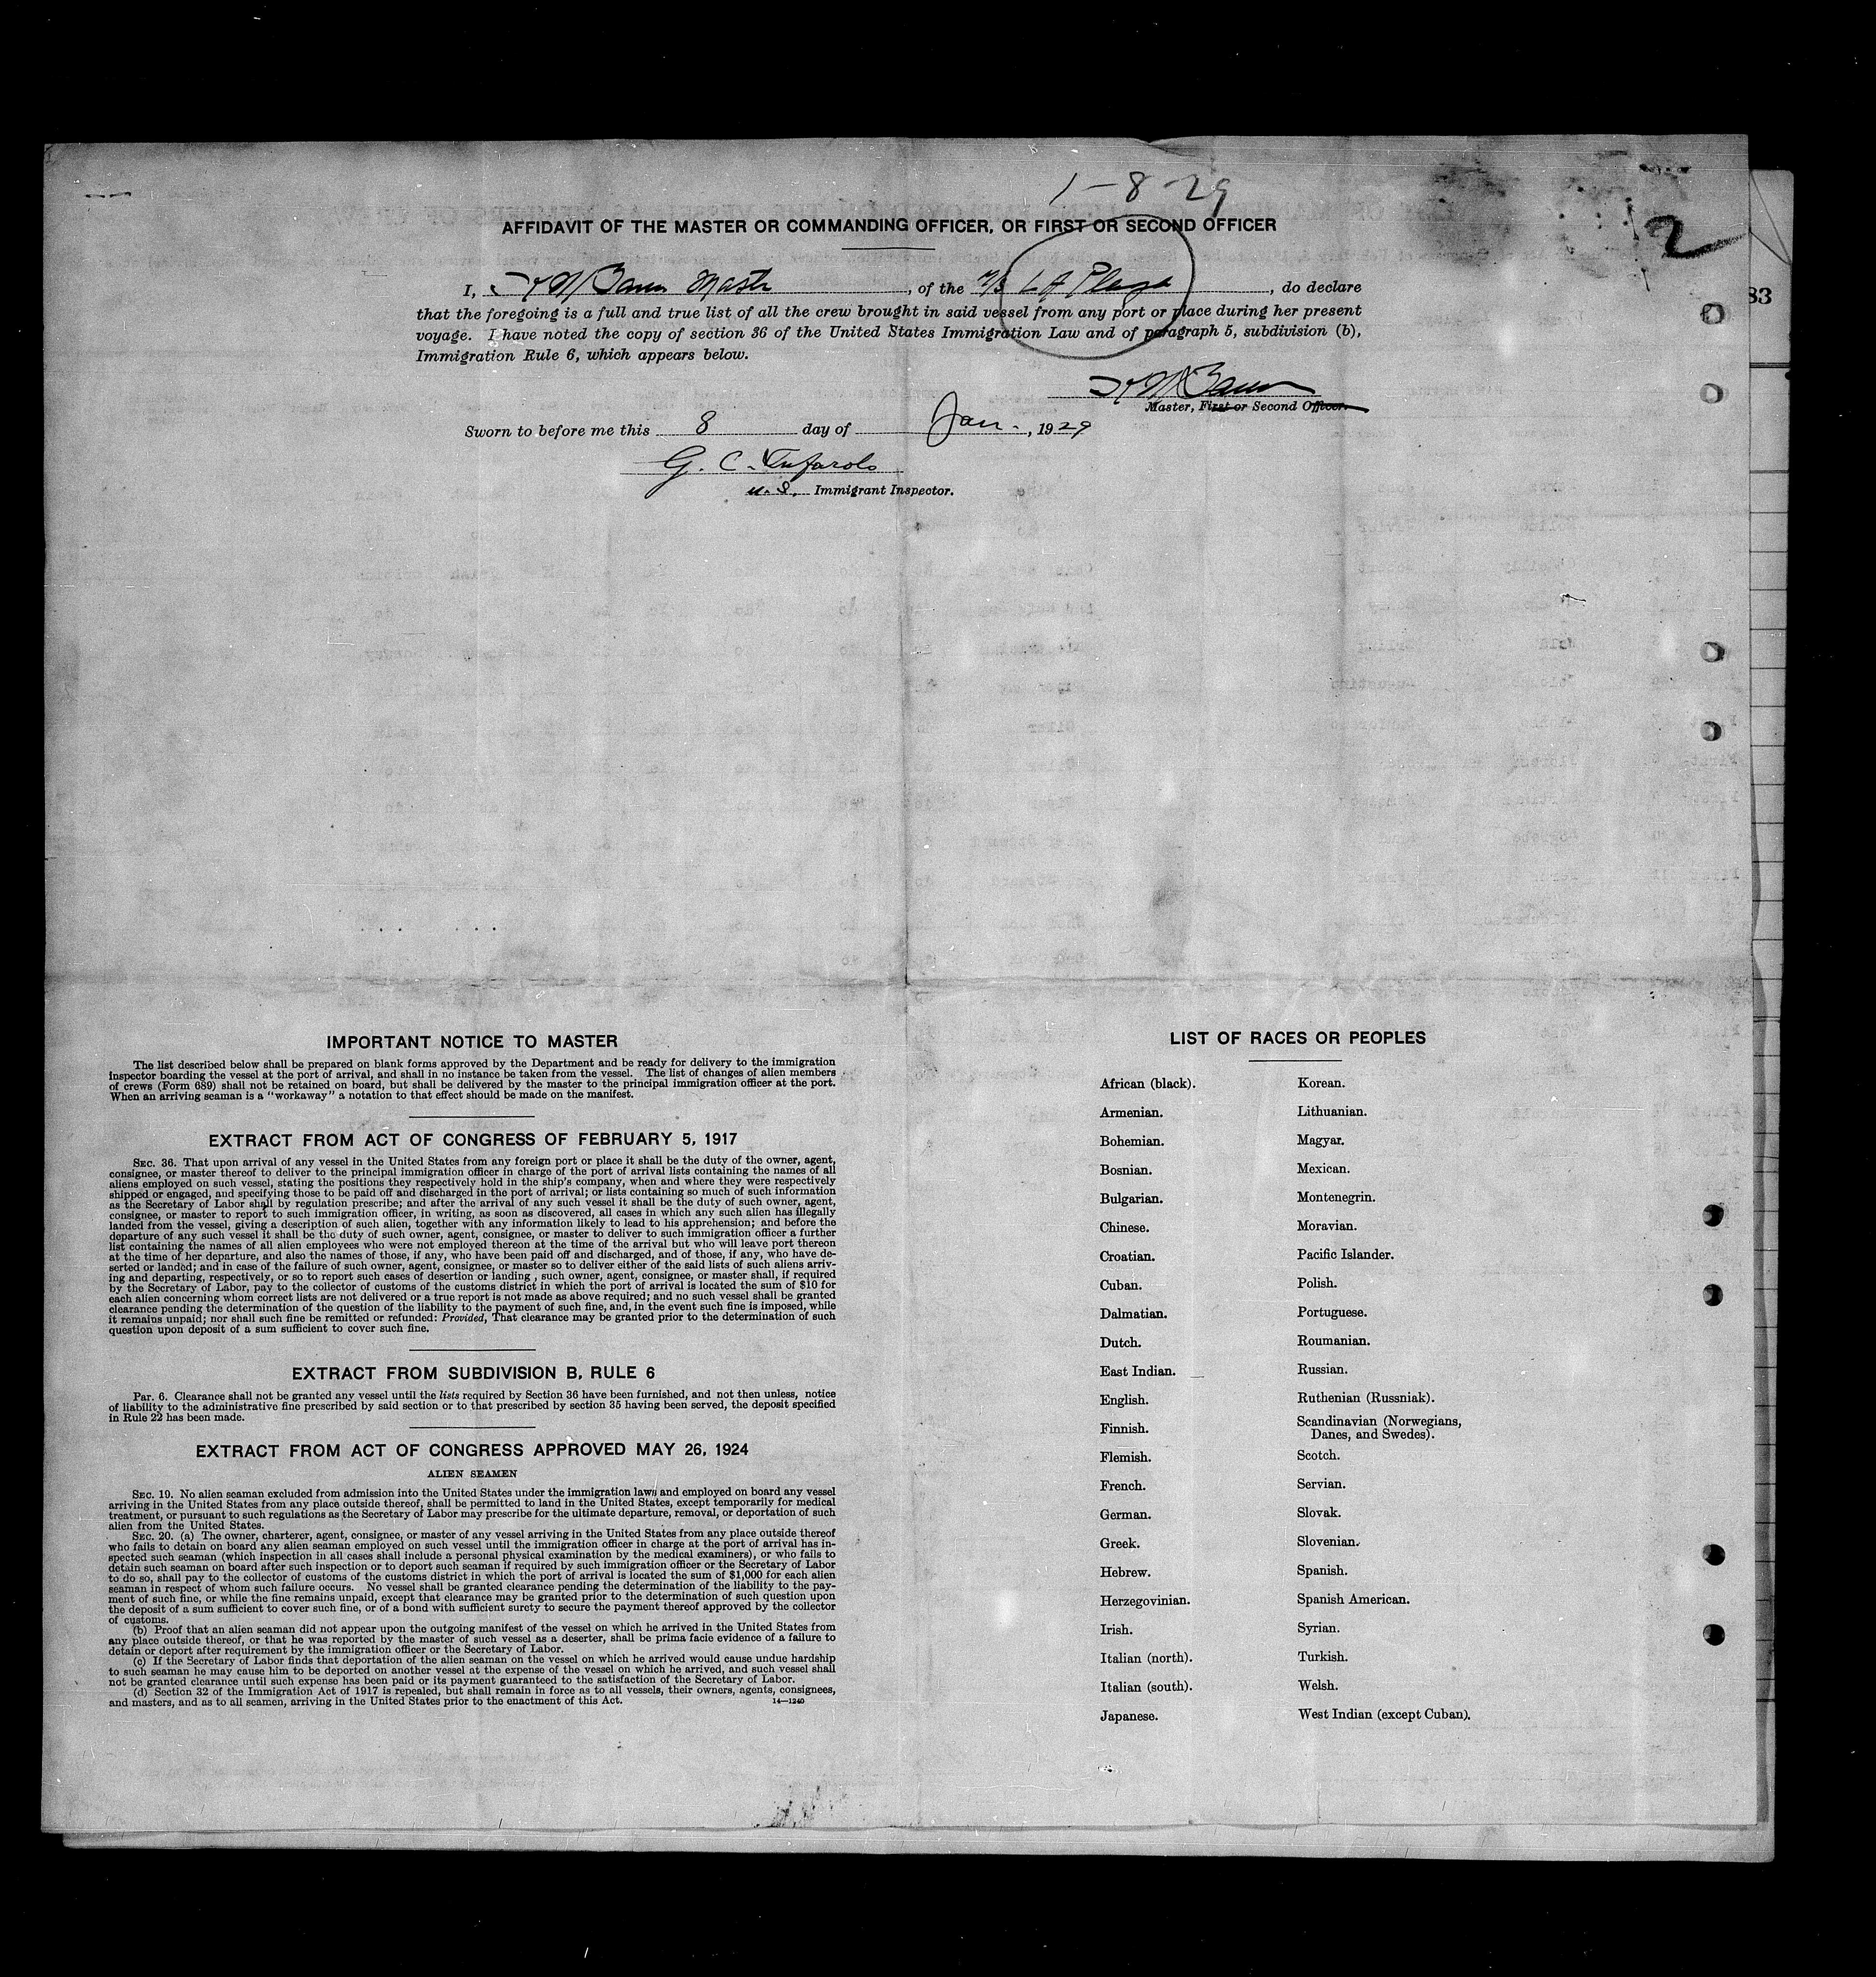 1-8-29
AFFIDAVIT OF THE MASTER OR COMMANDING OFFICER, OR FIRST OR SECOND OFFICER
2
I, Master, of the M/S La Playa, do declare
83
that the foregoing is a full and true list of all the crew brought in said vessel from any port or place during her present
voyage. I have noted the copy of section 36 of the United States Immigration Law and of paragraph 5, subdivision (b),
Immigration Rule 6, which appears below.
Master, First or Second Officer.
Sworn to before me this 8 day of Jan., 1929
G. C.
U.S. Immigrant Inspector.
IMPORTANT NOTICE TO MASTER
The list described below shall be prepared on blank forms approved by the Department and be ready for delivery to the immigration
inspector boarding the vessel at the port of arrival, and shall in no instance be taken from the vessel. The list of changes of alien members
of crews (Form 689) shall not be retained on board, but shall be delivered by the master to the principal immigration officer at the port.
When an arriving seaman is a "workaway" a notation to that effect should be made on the manifest.
EXTRACT FROM ACT OF CONGRESS OF FEBRUARY 5, 1917
SEC. 36. That upon arrival of any vessel in the United States from any foreign port or place it shall be the duty of the owner, agent,
consignee, or master thereof to deliver to the principal immigration officer in charge of the port of arrival lists containing the names of all
aliens employed on such vessel, stating the positions they respectively hold in the ship's company, when and where they were respectively
shipped or engaged, and specifying those to be paid off and discharged in the port of arrival; or lists containing so much of such information
as the Secretary of Labor shall by regulation prescribe; and after the arrival of any such vessel it shall be the duty of such owner, agent,
consignee, or master to report to such immigration officer, in writing, as soon as discovered, all cases in which any such alien has illegally
landed from the vessel, giving a description of such alien, together with any information likely to lead to his apprehension; and before the
departure of any such vessel it shall be the duty of such owner, agent, consignee, or master to deliver to such immigration officer a further
list containing the names of all alien employees who were not employed thereon at the time of the arrival but who will leave port thereon
at the time of her departure, and also the names of those, if any, who have been paid off and discharged, and of those, if any, who have de-
serted or landed; and in case of the failure of such owner, agent, consignee, or master so to deliver either of the said lists of such aliens arriv-
ing and departing, respectively, or so to report such cases of desertion or landing , such owner, agent, consignee, or master shall, if required
by the Secretary of Labor, pay to the collector of customs of the customs district in which the port of arrival is located the sum of $10 for
each alien concerning whom correct lists are not delivered or a true report is not made as above required; and no such vessel shall be granted
clearance pending the determination of the question of the liability to the payment of such fine, and, in the event such fine is imposed, while
it remains unpaid; nor shall such fine be remitted or refunded: Provided, That clearance may be granted prior to the determination of such
question upon deposit of a sum sufficient to cover such fine.
EXTRACT FROM SUBDIVISION B, RULE 6
Par. 6. Clearance shall not be granted any vessel until the lists required by Section 36 have been furnished, and not then unless, notice
of liability to the administrative fine prescribed by said section or to that prescribed by section 35 having been served, the deposit specified
in Rule 22 has been made.
EXTRACT FROM ACT OF CONGRESS APPROVED MAY 26, 1924
ALIEN SEAMEN
SEC. 19. No alien seaman excluded from admission into the United States under the immigration laws and employed on board any vessel
arriving in the United States from any place outside thereof, shall be permitted to land in the United States, except temporarily for medical
treatment, or pursuant to such regulations as the Secretary of Labor may prescribe for the ultimate departure, removal, or deportation of such
alien from the United States.
SEC. 20. (a) The owner, charterer, agent, consignee, or master of any vessel arriving in the United States from any place outside thereof
who fails to detain on board any alien seaman employed on such vessel until the immigration officer in charge at the port of arrival has in-
spected such seaman (which inspection in all cases shall include a personal physical examination by the medical examiners), or who fails to
detain such seaman on board after such inspection or to deport such seaman if required by such immigration officer or the Secretary of Labor
to do so, shall pay to the collector of customs of the customs district in which the port of arrival is located the sum of $1,000 for each alien
seaman in respect of whom such failure occurs. No vessel shall be granted clearance pending the determination of the liability to the pay-
ment of such fine, or while the fine remains unpaid, except that clearance may be granted prior to the determination of such question upon
the deposit of a sum sufficient to cover such fine, or of a bond with sufficient surety to secure the payment thereof approved by the collector
of customs.
(b) Proof that an alien seaman did not appear upon the outgoing manifest of the vessel on which he arrived in the United States from
any place outside thereof, or that he was reported by the master of such vessel as a deserter, shall be prima facie evidence of a failure to
detain or deport after requirement by the immigration officer or the Secretary of Labor.
(c) If the Secretary of Labor finds that deportation of the alien seaman on the vessel on which he arrived would cause undue hardship
to such seaman he may cause him to be deported on another vessel at the expense of the vessel on which he arrived, and such vessel shall
not be granted clearance until such expense has been paid or its payment guaranteed to the satisfaction of the Secretary of Labor.
(d) Section 32 of the Immigration Act of 1917 is repealed, but shall remain in force as to all vessels, their owners, agents, consignees,
and masters, and as to all seamen, arriving in the United States prior to the enactment of this Act.
14—1240
LIST OF RACES OR PEOPLES
African (black).
Armenian.
Bohemian.
Bosnian.
Bulgarian.
Chinese.
Croatian.
Cuban.
Dalmatian.
Dutch.
East Indian.
English.
Finnish.
Flemish.
French.
German.
Greek.
Hebrew.
Herzegovinian.
Irish.
Italian (north).
Italian (south).
Japanese.
Korean.
Lithuanian.
Magyar.
Mexican.
Montenegrin.
Moravian.
Pacific Islander.
Polish.
Portuguese.
Roumanian.
Russian.
Ruthenian (Russniak).
Scandinavian (Norwegians,
Danes, and Swedes).
Scotch.
Servian.
Slovak.
Slovenian.
Spanish.
Spanish American.
Syrian.
Turkish.
Welsh.
West Indian (except Cuban).